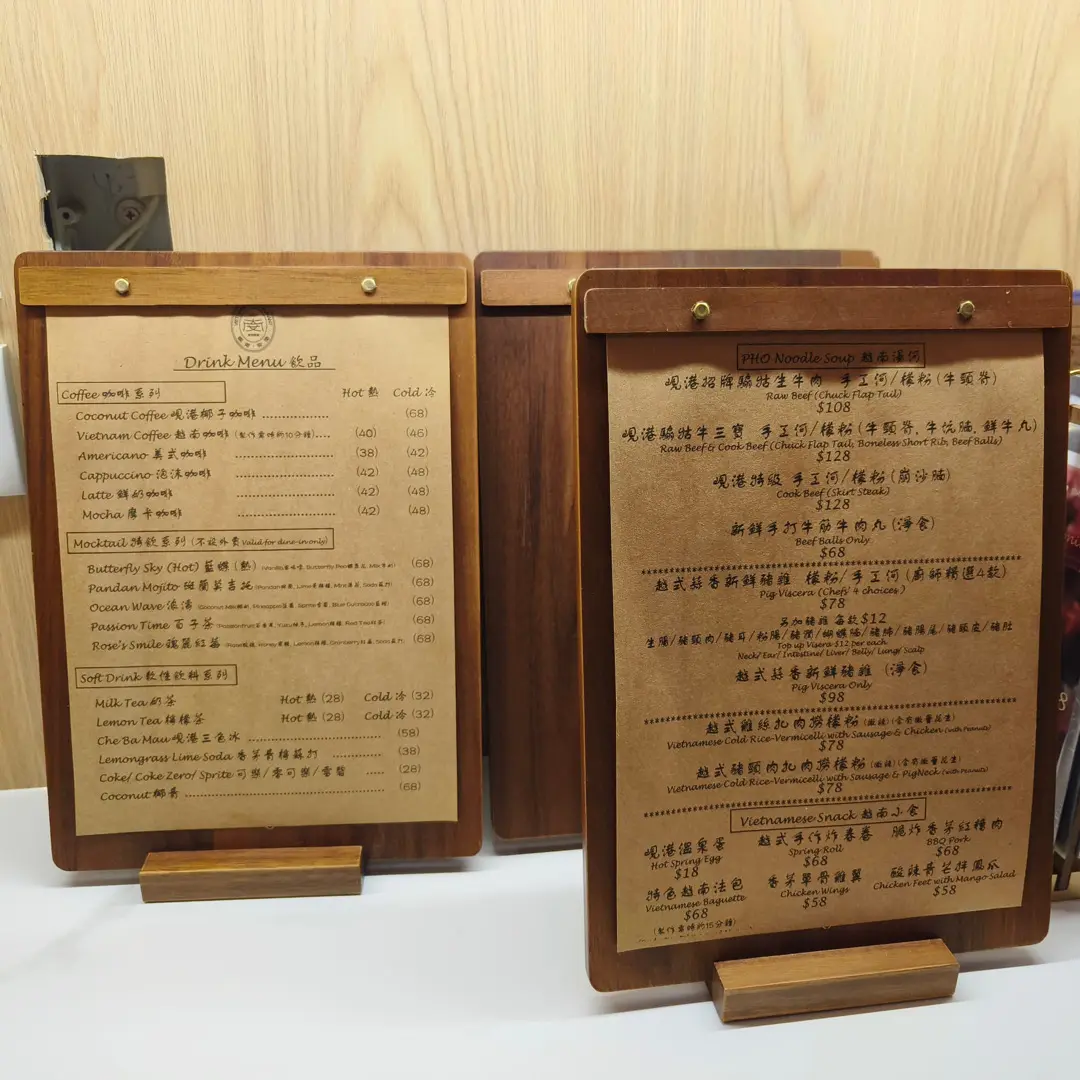 Drink Menu 飲品
Coffee 咖啡系列 Hot 熱 Cold 冷
Coconut Coffee 峴港椰子咖啡 (68)
Vietnam Coffee 越南咖啡 (製作需時約10分鐘) (40) (46)
Americano 美式咖啡 (38) (42)
Cappuccino 泡沫咖啡 (42) (48)
Latte 鮮奶咖啡 (42) (48)
Mocha 摩卡咖啡 (42) (48)
Mocktail 特飲系列 (不設外賣 Valid for dine-in only)
Butterfly Sky (Hot) 藍蝶 (熱) (68)
Pandan Mojito 斑蘭莫吉托 (68)
Ocean Wave 浪濤 (68)
Passion Time 百子茶 (68)
Rose's Smile 瑰麗紅莓 (68)
Soft Drink 軟性飲料系列
Milk Tea 奶茶 Hot 熱 (28) Cold 冷 (32)
Lemon Tea 檸檬茶 Hot 熱 (28) Cold 冷 (32)
Che Ba Mau 峴港三色冰 (58)
Lemongrass Lime Soda 香茅青檸蘇打 (38)
Coke/ Coke Zero/ Sprite 可樂/零可樂/雪碧 (28)
Coconut 椰青 (68)
PHO Noodle Soup 越南湯河
峴港招牌騸牯生牛肉 手工河/檬粉 (牛頸脊)
Raw Beef (Chuck Flap Tail)
$108
峴港騸牯牛三寶 手工河/檬粉 (牛頸脊、牛坑腩、鮮牛丸)
Raw Beef & Cook Beef (Chuck Flap Tail, Boneless Short Rib, Beef Balls)
$128
峴港特級 手工河/檬粉 (崩沙腩)
Cook Beef (Skirt Steak)
$128
新鮮手打牛筋牛肉丸 (淨食)
Beef Balls Only
$68
越式蒜香新鮮豬雜 檬粉/手工河 (廚師精選4款)
Pig Viscera (Chefs' 4 choices)
$78
另加豬雜 每款$12
生腸/豬頸肉/豬耳/粉腸/豬膶/蝴蝶腩/豬肺/豬腸尾/豬頭皮/豬肚
Top up Visera $12 per each
Neck/ Ear/ Intestine/ Liver/ Belly/ Lung/ Scalp
越式蒜香新鮮豬雜 (淨食)
Pig Viscera Only
$98
越式雞絲扎肉撈檬粉 (微辣) (含有微量花生)
Vietnamese Cold Rice-Vermicelli with Sausage & Chicken (with Peanuts)
$78
越式豬頸肉扎肉撈檬粉 (微辣) (含有微量花生)
Vietnamese Cold Rice-Vermicelli with Sausage & PigNeck (with Peanuts)
$78
Vietnamese Snack 越南小食
峴港溫泉蛋 越式手作炸春卷 脆炸香茅紅糟肉
Hot Spring Egg Spring Roll BBQ Pork
$18 $68 $68
特色越南法包 香茅單骨雞翼 酸辣青芒拌鳳爪
Vietnamese Baguette Chicken Wings Chicken Feet with Mango Salad
$68 $58 $58
(製作需時約15分鐘)